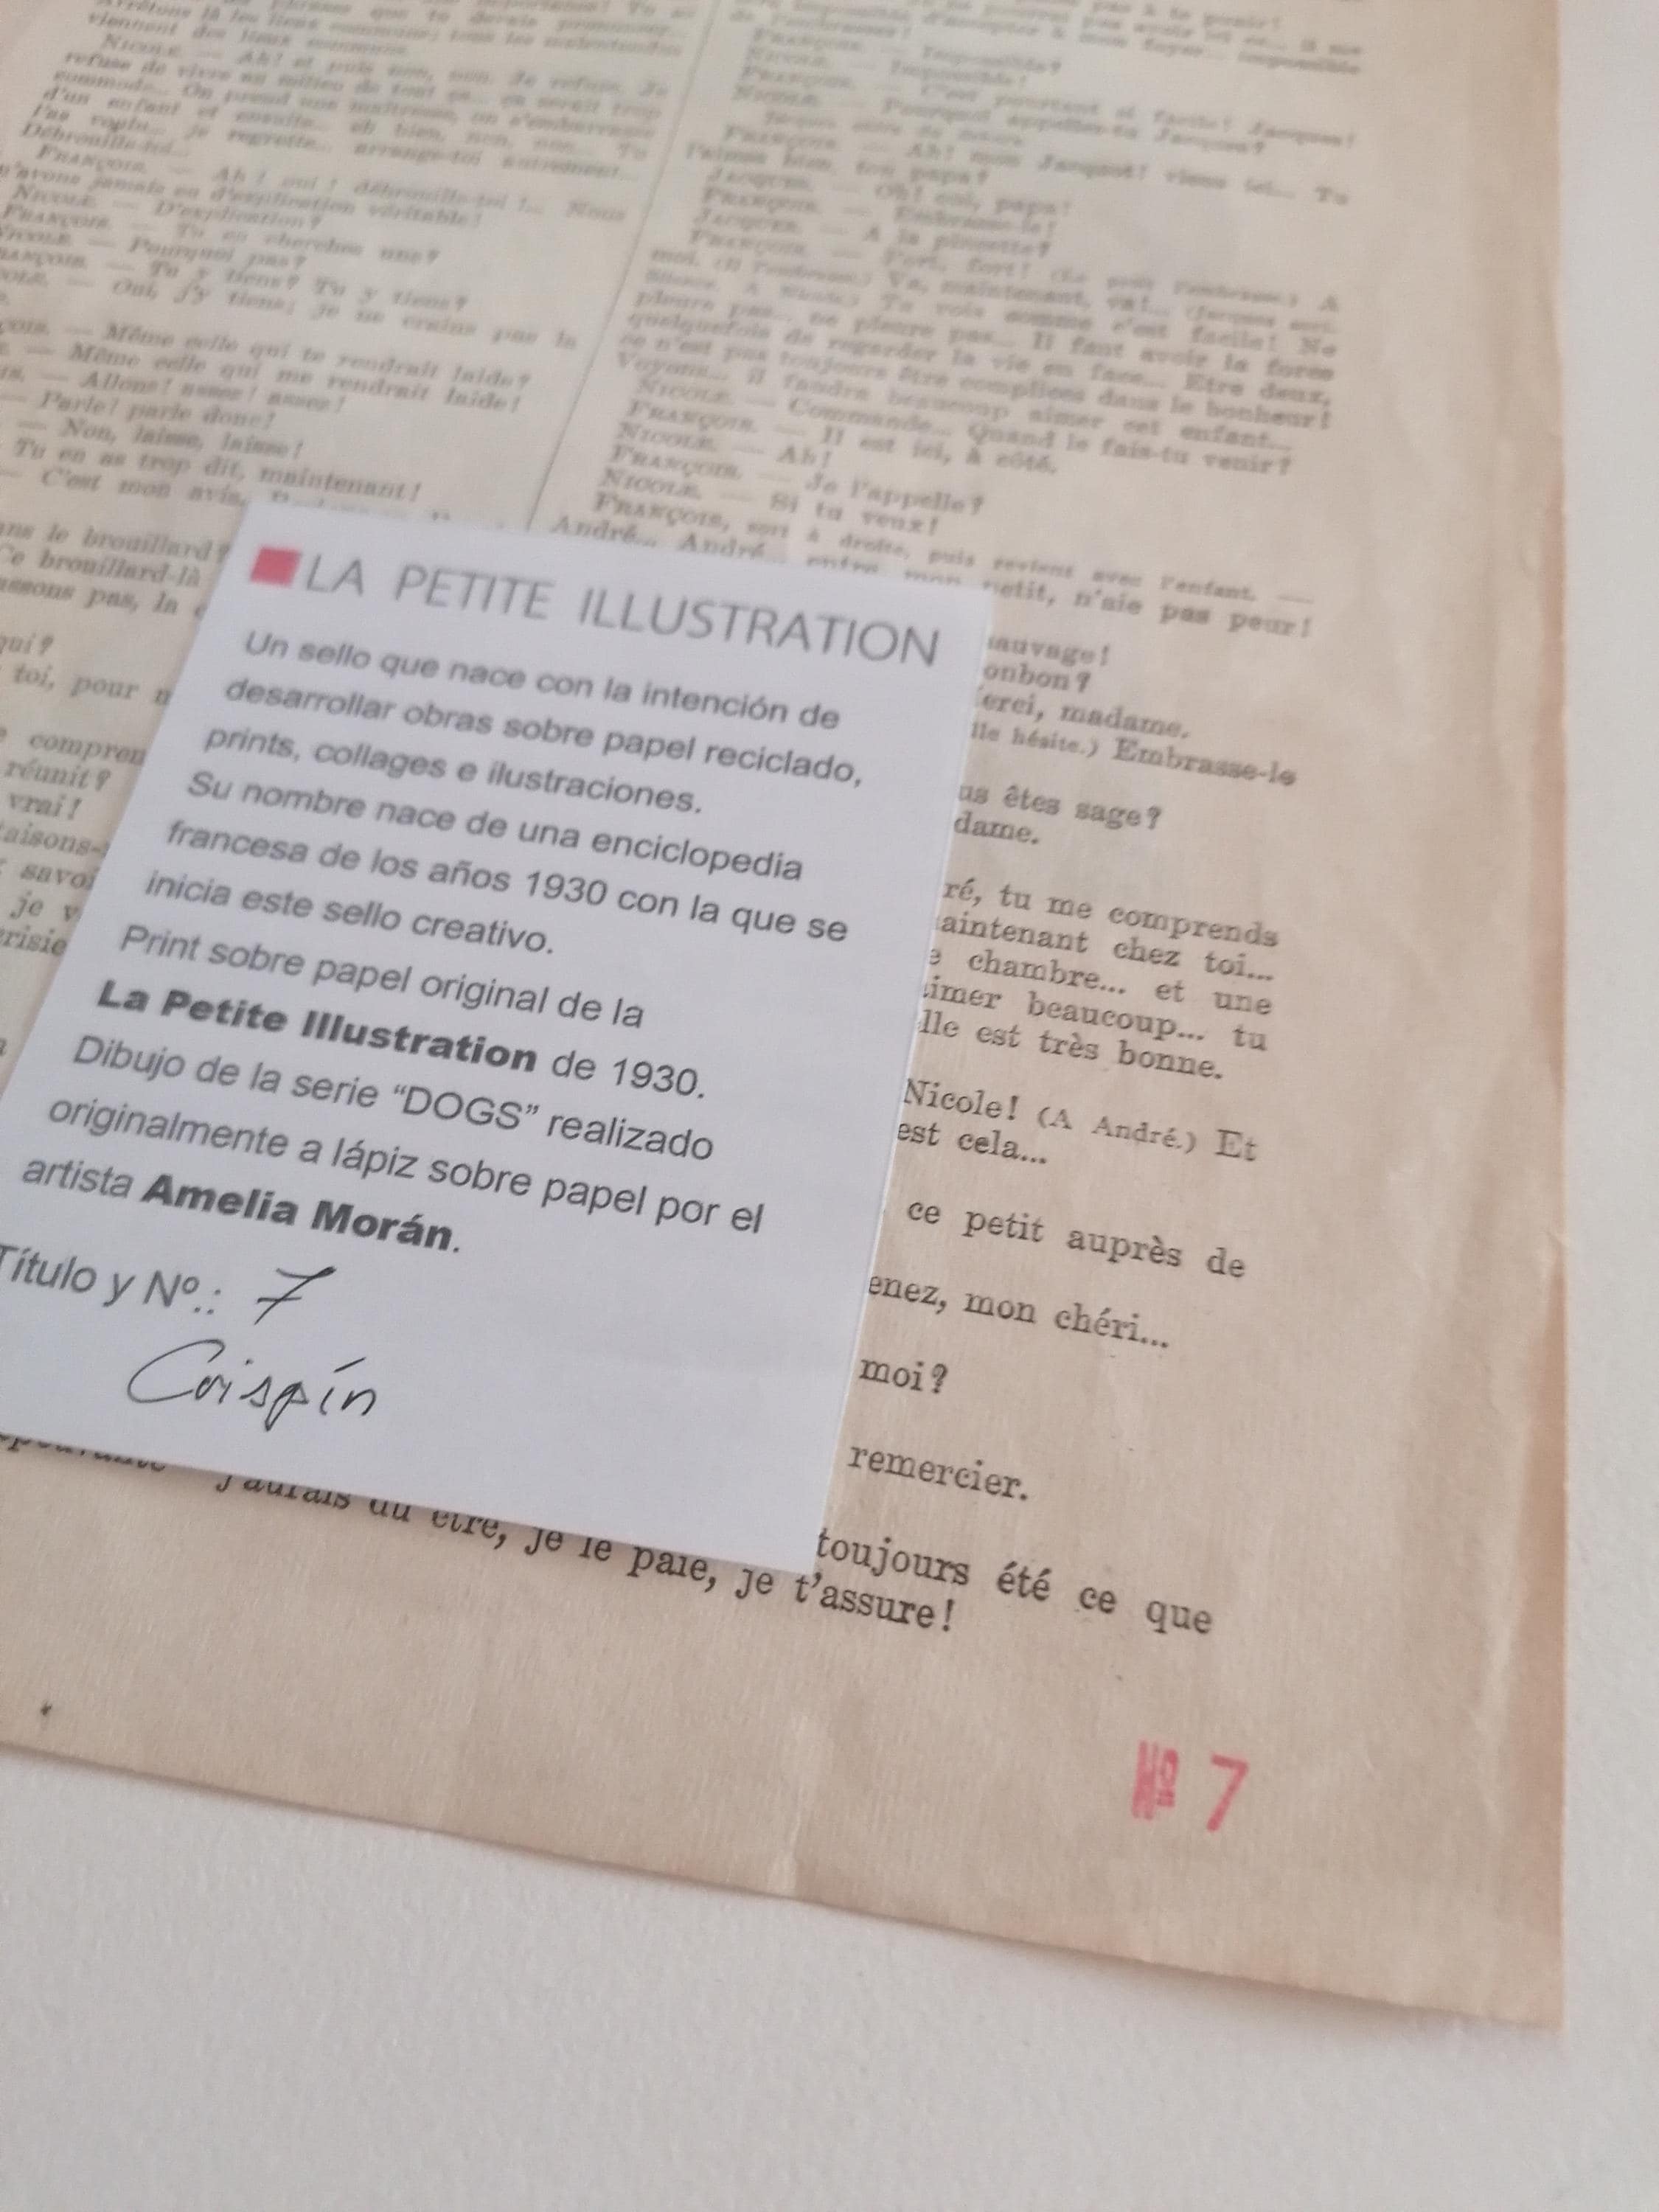 refuse de vivre au milieu de tout ça... ça serait trop
commode... On prend une maîtresse, on s'embarrasse
d'un enfant et ensuite... eh bien, non, non... Tu
l'as voulu... je regrette... arrange-toi autrement...
Débrouille-toi...
FRANÇOIS. — Ah! oui! débrouille-toi!... Nous
n'avons jamais eu d'explication véritable!
NICOLE. — D'explication?
FRANÇOIS. — Tu en cherches une?
NICOLE. — Pourquoi pas?
FRANÇOIS. — Tu y tiens? Tu y tiens?
NICOLE. — Oui, j'y tiens; je ne crains pas la
— Même celle qui te rendrait laide?
— Même celle qui me rendrait laide!
— Allons! assez! assez!
— Parle! parle donc!
— Non, laisse, laisse!
Tu en as trop dit, maintenant!
— C'est mon avis.
le brouillard?
Ce brouillard-là
pas, la
qui?
toi, pour
compren
réunit?
vrai!
savoi
je
FRANÇOIS. — Impossible?
NICOLE. — Impossible!
FRANÇOIS. — C'est pourtant si facile! Jacques!
NICOLE. — Pourquoi appelles-tu Jacques?
FRANÇOIS. — Ah! mon Jacquot! viens ici... Tu
l'aimes bien, ton papa?
JACQUES. — Oh! oui, papa!
FRANÇOIS. — Embrasse-le!
JACQUES. — A la pincette?
FRANÇOIS. — Fort, fort! (Le petit l'embrasse.) A
moi. (Il l'embrasse.) Va, maintenant, va!... (Jacques sort.
Silence. A Nicole.) Tu vois comme c'est facile! Ne
pleure pas... ne pleure pas... Il faut avoir la force
quelquefois de regarder la vie en face... Etre deux,
ce n'est pas toujours être complices dans le bonheur!
Voyons... il faudra beaucoup aimer cet enfant...
NICOLE. — Commande... Quand le fais-tu venir?
FRANÇOIS. — Il est ici, à côté.
NICOLE. — Ah!
FRANÇOIS. — Je l'appelle?
NICOLE. — Si tu veux!
FRANÇOIS, sort à droite, puis revient avec l'enfant. —
André... André... entre, mon petit, n'aie pas peur!
sauvage!
onbon?
erci, madame.
lle hésite.) Embrasse-le
us êtes sage?
dame.
ré, tu me comprends
aintenant chez toi...
e chambre... et une
imer beaucoup... tu
lle est très bonne.
Nicole! (A André.) Et
est cela...
ce petit auprès de
enez, mon chéri...
moi?
remercier.
toujours été ce que
j'aurais dû être, je le paie, je t'assure!
Nº 7
LA PETITE ILLUSTRATION
Un sello que nace con la intención de
desarrollar obras sobre papel reciclado,
prints, collages e ilustraciones.
Su nombre nace de una enciclopedia
francesa de los años 1930 con la que se
inicia este sello creativo.
Print sobre papel original de la
La Petite Illustration de 1930.
Dibujo de la serie “DOGS” realizado
originalmente a lápiz sobre papel por el
artista Amelia Morán.
Título y Nº.: 7
Crispín